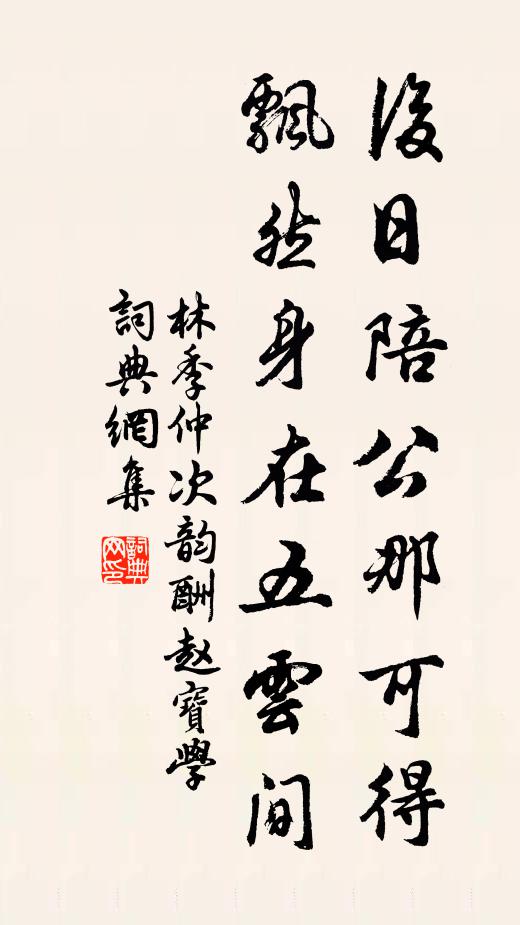 後日陪公那可得
飄然身在五雲間
林季仲次韵酬赵寶學
詞典網集
詞典网印